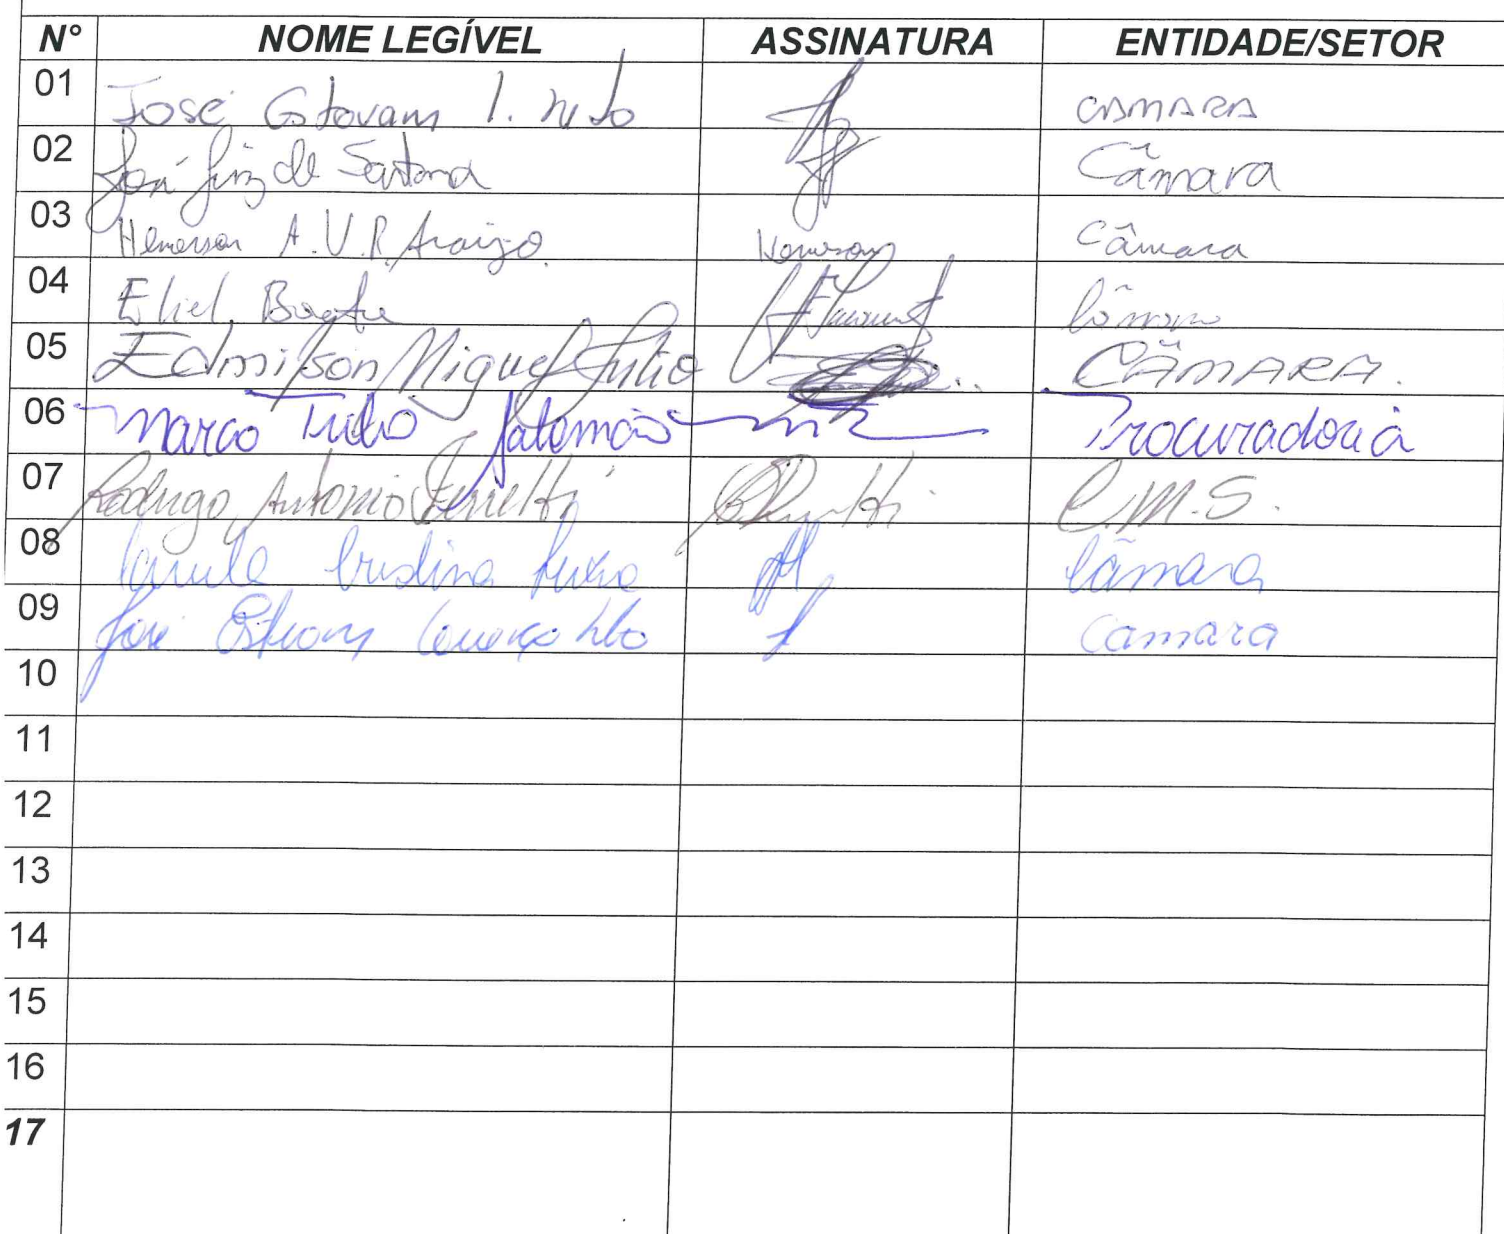 N° NOME LEGÍVEL ASSINATURA ENTIDADE/SETOR
01 José Estovam l. Neto CAMARA
02 José Luiz de Santana Câmara
03 Hemerson A.V.R. Araújo Hemerson Câmara
04 Eliel Câmara
05 Edmilson Miguel Julio CÂMARA.
06 Marco Tulio Salomão Procuradoria
07 Rodrigo Antonio Ferretti C.M.S.
08 Cristina Câmara
09 José Neto Camara
10
11
12
13
14
15
16
17